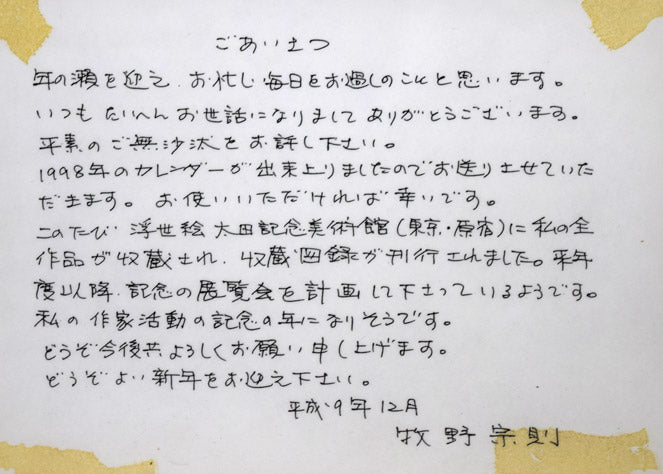 ごあいさつ
年の瀬を迎え、お忙しい毎日をお過しのことと思います。
いつもたいへんお世話になりましてありがとうございます。
平素のご無沙汰をお許し下さい。
1998年のカレンダーが出来上りましたのでお送りさせていた
だきます。お使いいただければ幸いです。
このたび浮世絵太田記念美術館(東京・原宿)に私の全
作品が収蔵され、収蔵図録が刊行されました。来年
度以降、記念の展覧会を計画して下さっているようです。
私の作家活動の記念の年になりそうです。
どうぞ今後共よろしくお願い申し上げます。
どうぞよい新年をお迎え下さい。
平成9年12月
牧野宗則